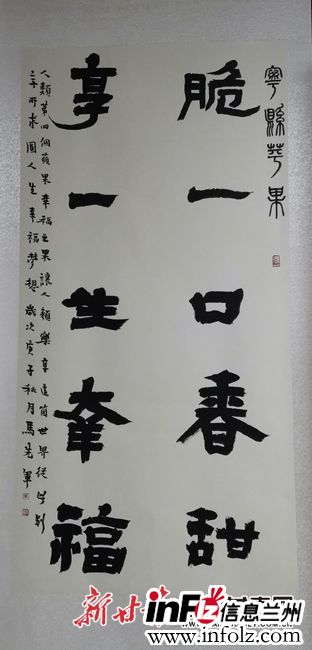 寧縣苹果
脆一口香甜
享一生幸福
人類第四個蘋果幸福之果讓人類樂享這個世界從此別
所求圓人生幸福夢想歲次庚子秋月馬
新甘
inFolz信息兰州
www.infolz.com